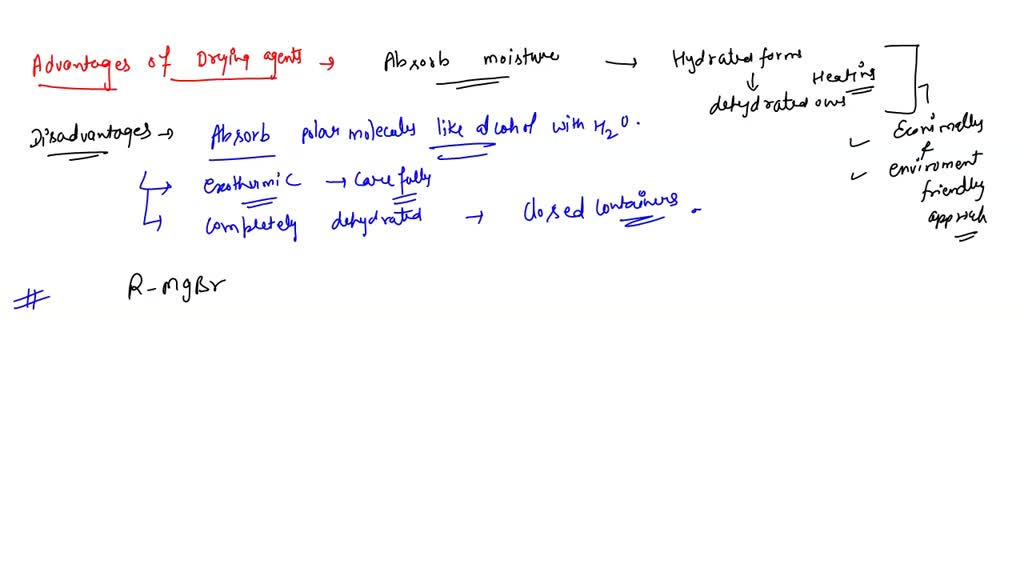 Advantages of Drying agents → Absorb moisture → Hydrated forms
↓ Heating
dehydrated ows
Disadvantages → Absorb polar molecules like alcohol with H2O.
Econimally
&
enviroment
friendly
approach
exothermic → carefully
completely dehydrated → closed containers.
# R-MgBr